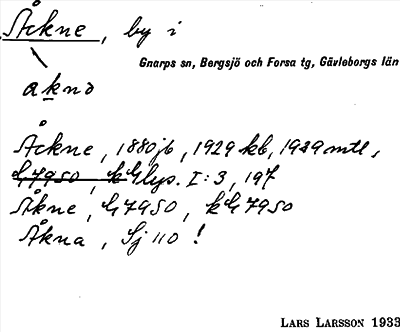 Åckne, by i
Gnarps sn, Bergsjö och Forsa tg, Gävleborgs län
aknə
Åckne, 1880jb, 1929 kb, 1929 mtl,
G7950, kGlys. I:3, 197
Åkne, G7950, kG7950
Åkna, Sj 110 !
LARS LARSSON 1933